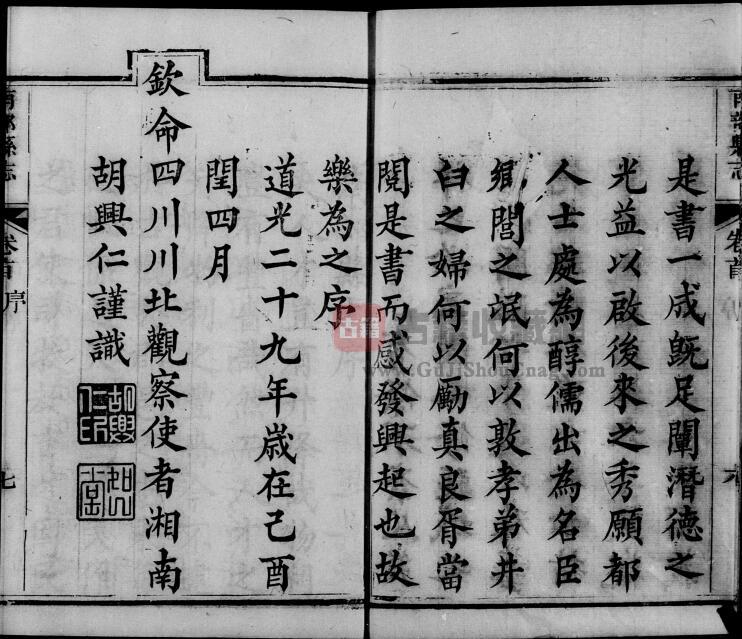 南部縣志
卷首
是書一成既足闡潛德之
光益以啟後來之秀願都
人士處為醇儒出為名臣
鄉閭之氓何以敦孝弟井
臼之婦何以勵真良胥當
閱是書而感發興起也故
樂為之序
道光二十九年歲在己酉
閏四月
欽命四川川北觀察使者湘南
胡興仁謹識
胡興仁印
南部縣志
卷首
序
七
古籍
古籍收藏
www.GuJiShouCang.com